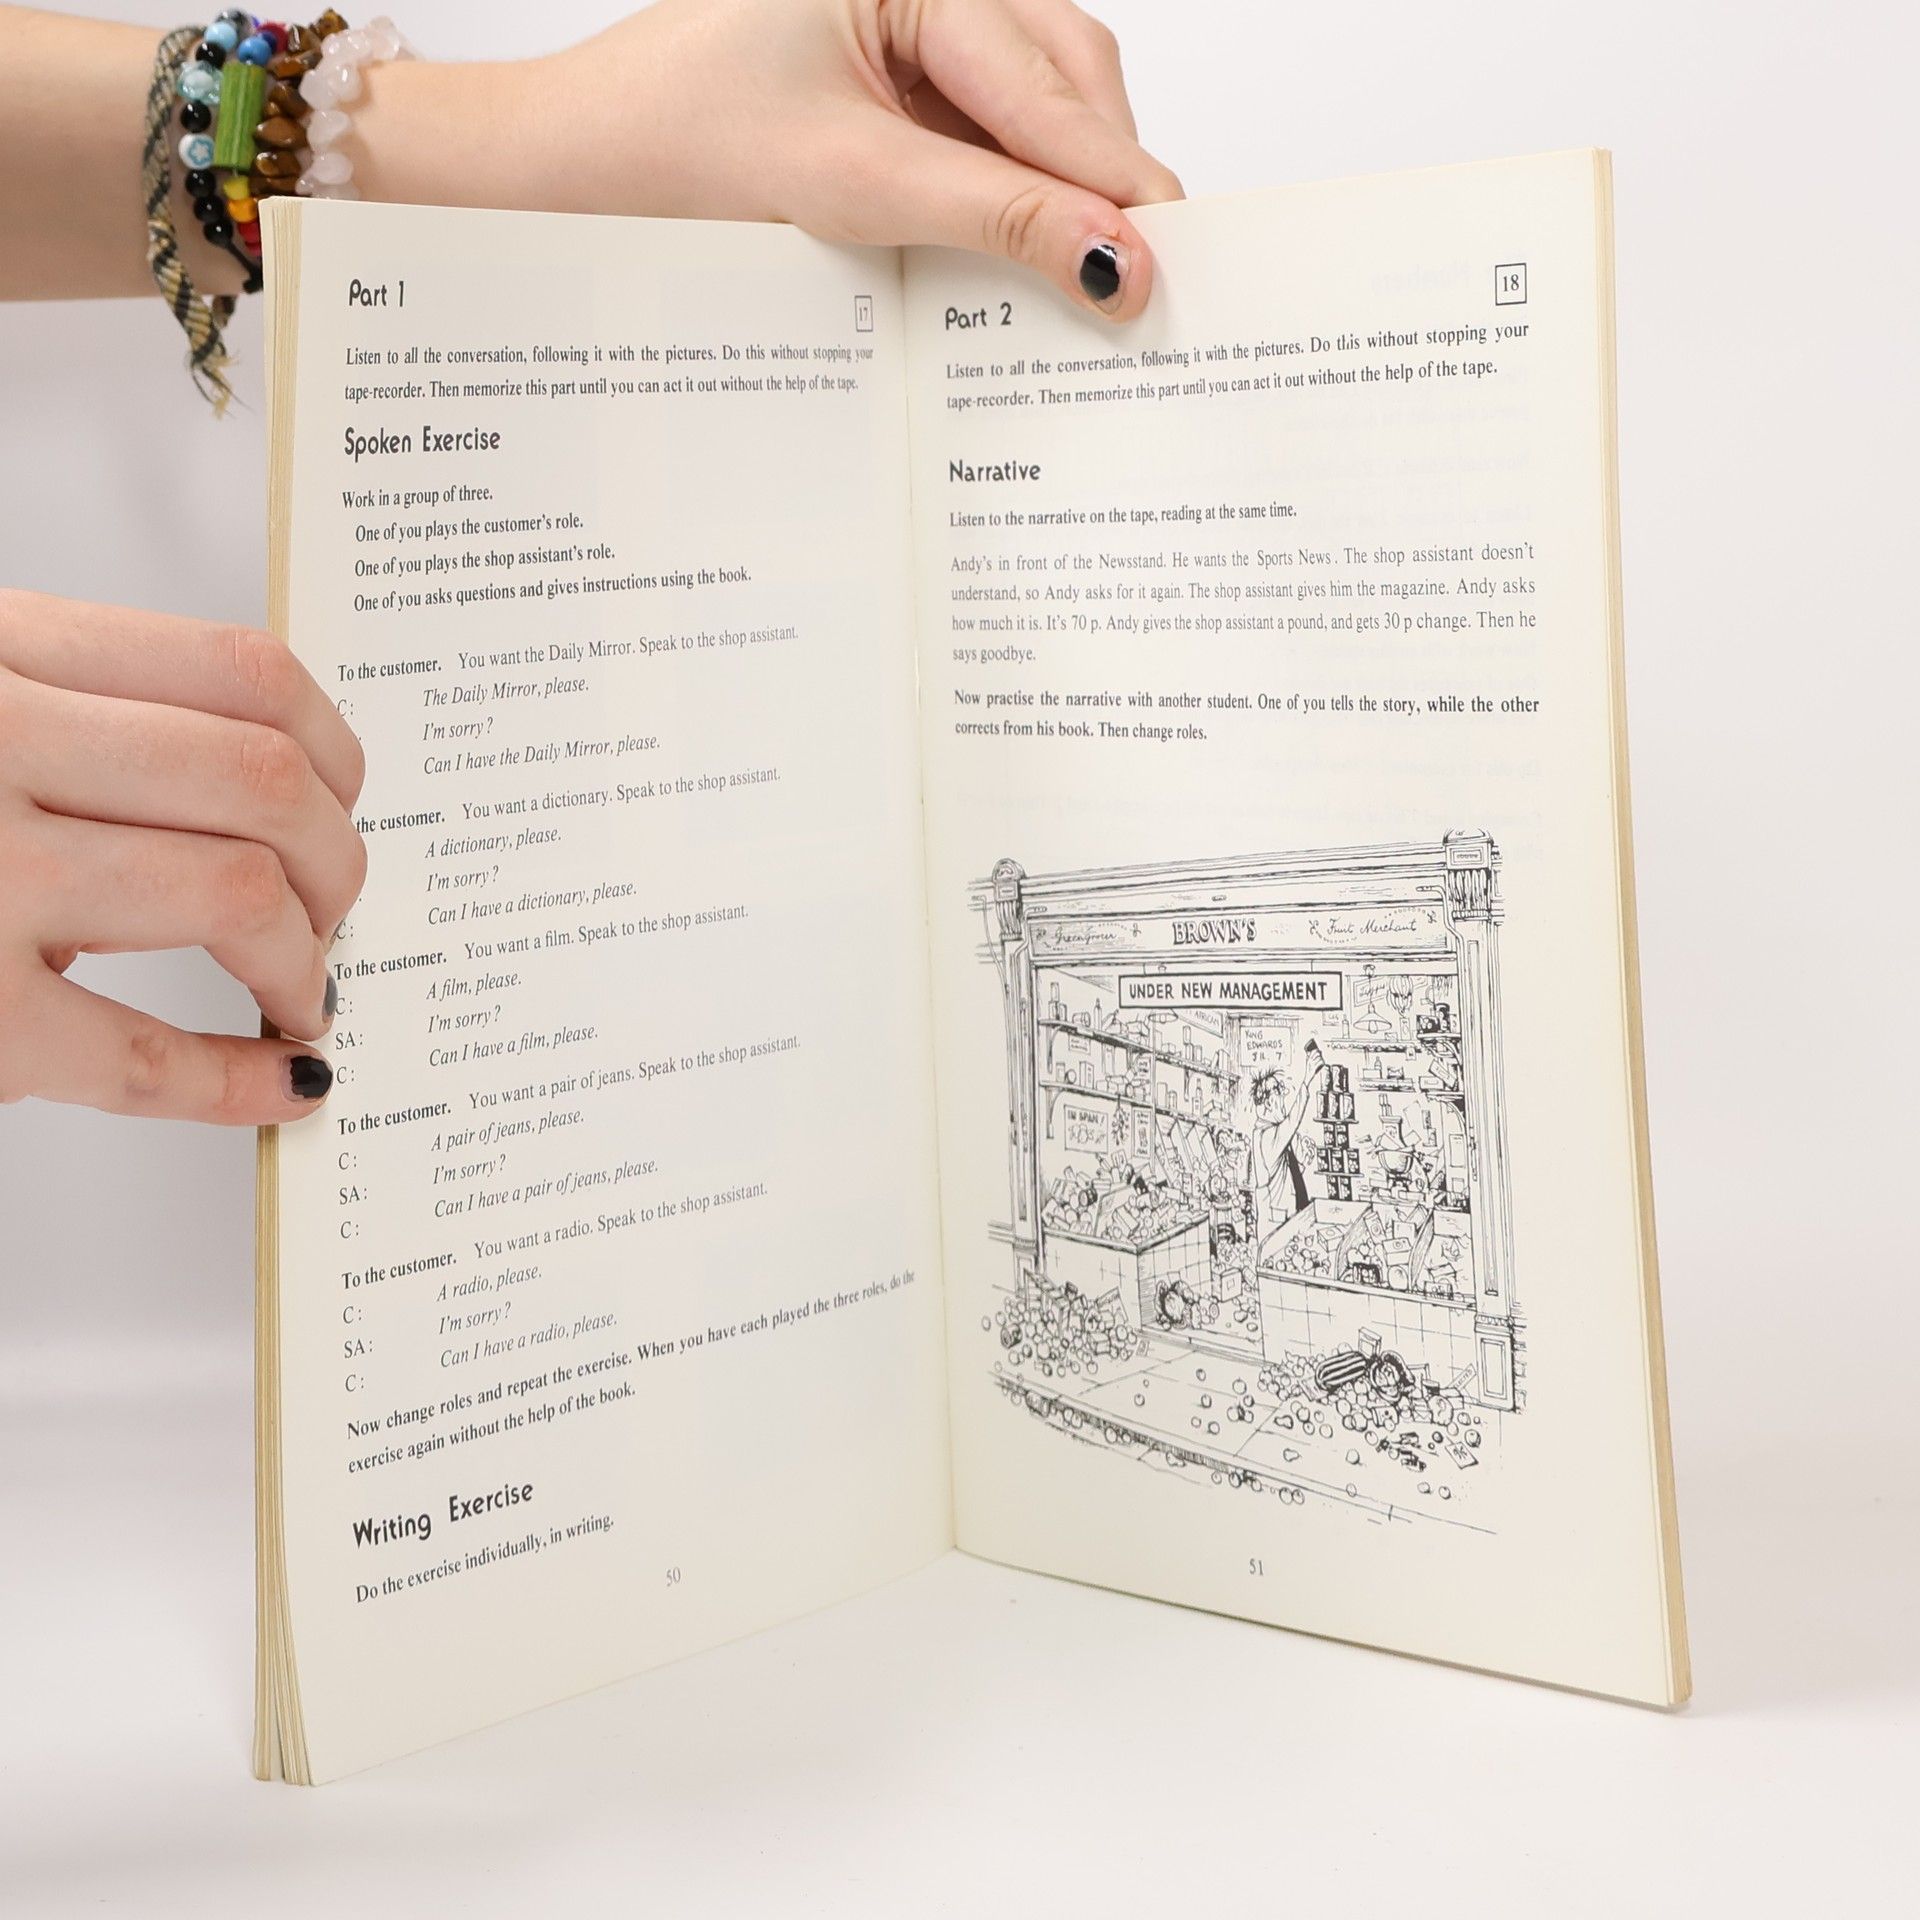 Part 1
17
Listen to all the conversation, following it with the pictures. Do this without stopping your
tape-recorder. Then memorize this part until you can act it out without the help of the tape.
Spoken Exercise
Work in a group of three.
One of you plays the customer's role.
One of you plays the shop assistant's role.
One of you asks questions and gives instructions using the book.
To the customer. You want the Daily Mirror. Speak to the shop assistant.
C: The Daily Mirror, please.
I'm sorry?
Can I have the Daily Mirror, please.
the customer. You want a dictionary. Speak to the shop assistant.
A dictionary, please.
I'm sorry?
C: Can I have a dictionary, please.
To the customer. You want a film. Speak to the shop assistant.
C: A film, please.
SA: I'm sorry?
C: Can I have a film, please.
To the customer. You want a pair of jeans. Speak to the shop assistant.
C: A pair of jeans, please.
SA: I'm sorry?
C: Can I have a pair of jeans, please.
To the customer. You want a radio. Speak to the shop assistant.
C: A radio, please.
SA: I'm sorry?
C: Can I have a radio, please.
Now change roles and repeat the exercise. When you have each played the three roles, do the
exercise again without the help of the book.
Writing Exercise
Do the exercise individually, in writing.
50
18
Part 2
Listen to all the conversation, following it with the pictures. Do this without stopping your
tape-recorder. Then memorize this part until you can act it out without the help of the tape.
Narrative
Listen to the narrative on the tape, reading at the same time.
Andy's in front of the Newsstand. He wants the Sports News. The shop assistant doesn't
understand, so Andy asks for it again. The shop assistant gives him the magazine. Andy asks
how much it is. It's 70 p. Andy gives the shop assistant a pound, and gets 30 p change. Then he
says goodbye.
Now practise the narrative with another student. One of you tells the story, while the other
corrects from his book. Then change roles.
Greengrocer BROWN'S Fruit Merchant
UNDER NEW MANAGEMENT
KING
EDWARDS
51